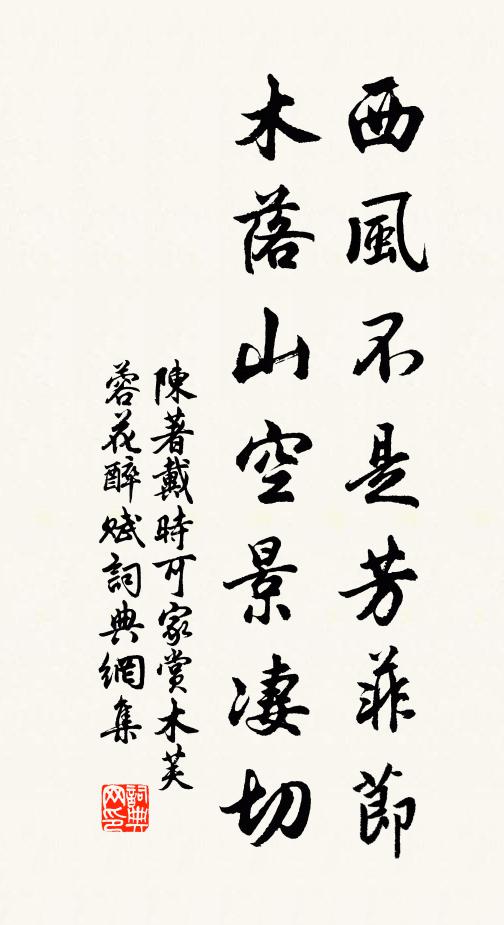 西風不是芳菲節
木落山空景凄切
陳著戴時可家賞木芙
蓉花醉賦詞典網集
詞典
网印